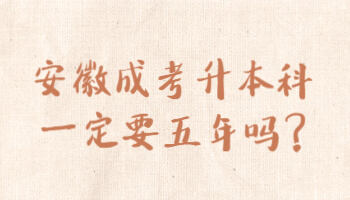 安徽成考升本科
一定要五年吗?